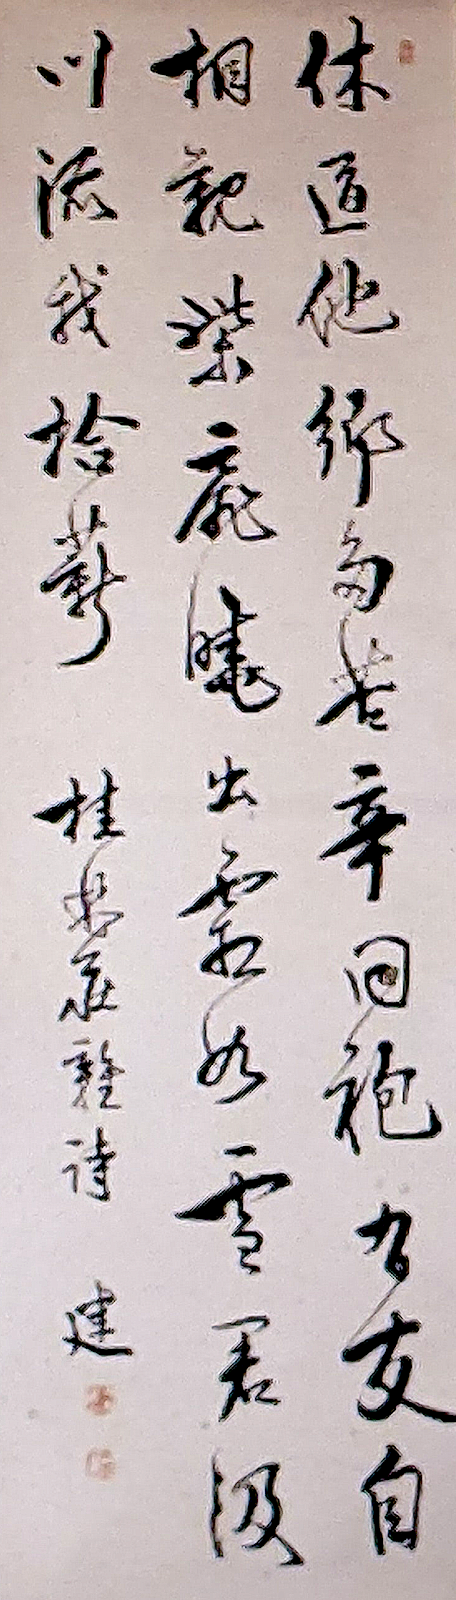 休道他郷多苦辛同袍有友自
相親柴扉曉出霜如雪君汲
川流我拾薪　桂林荘雜詩　建